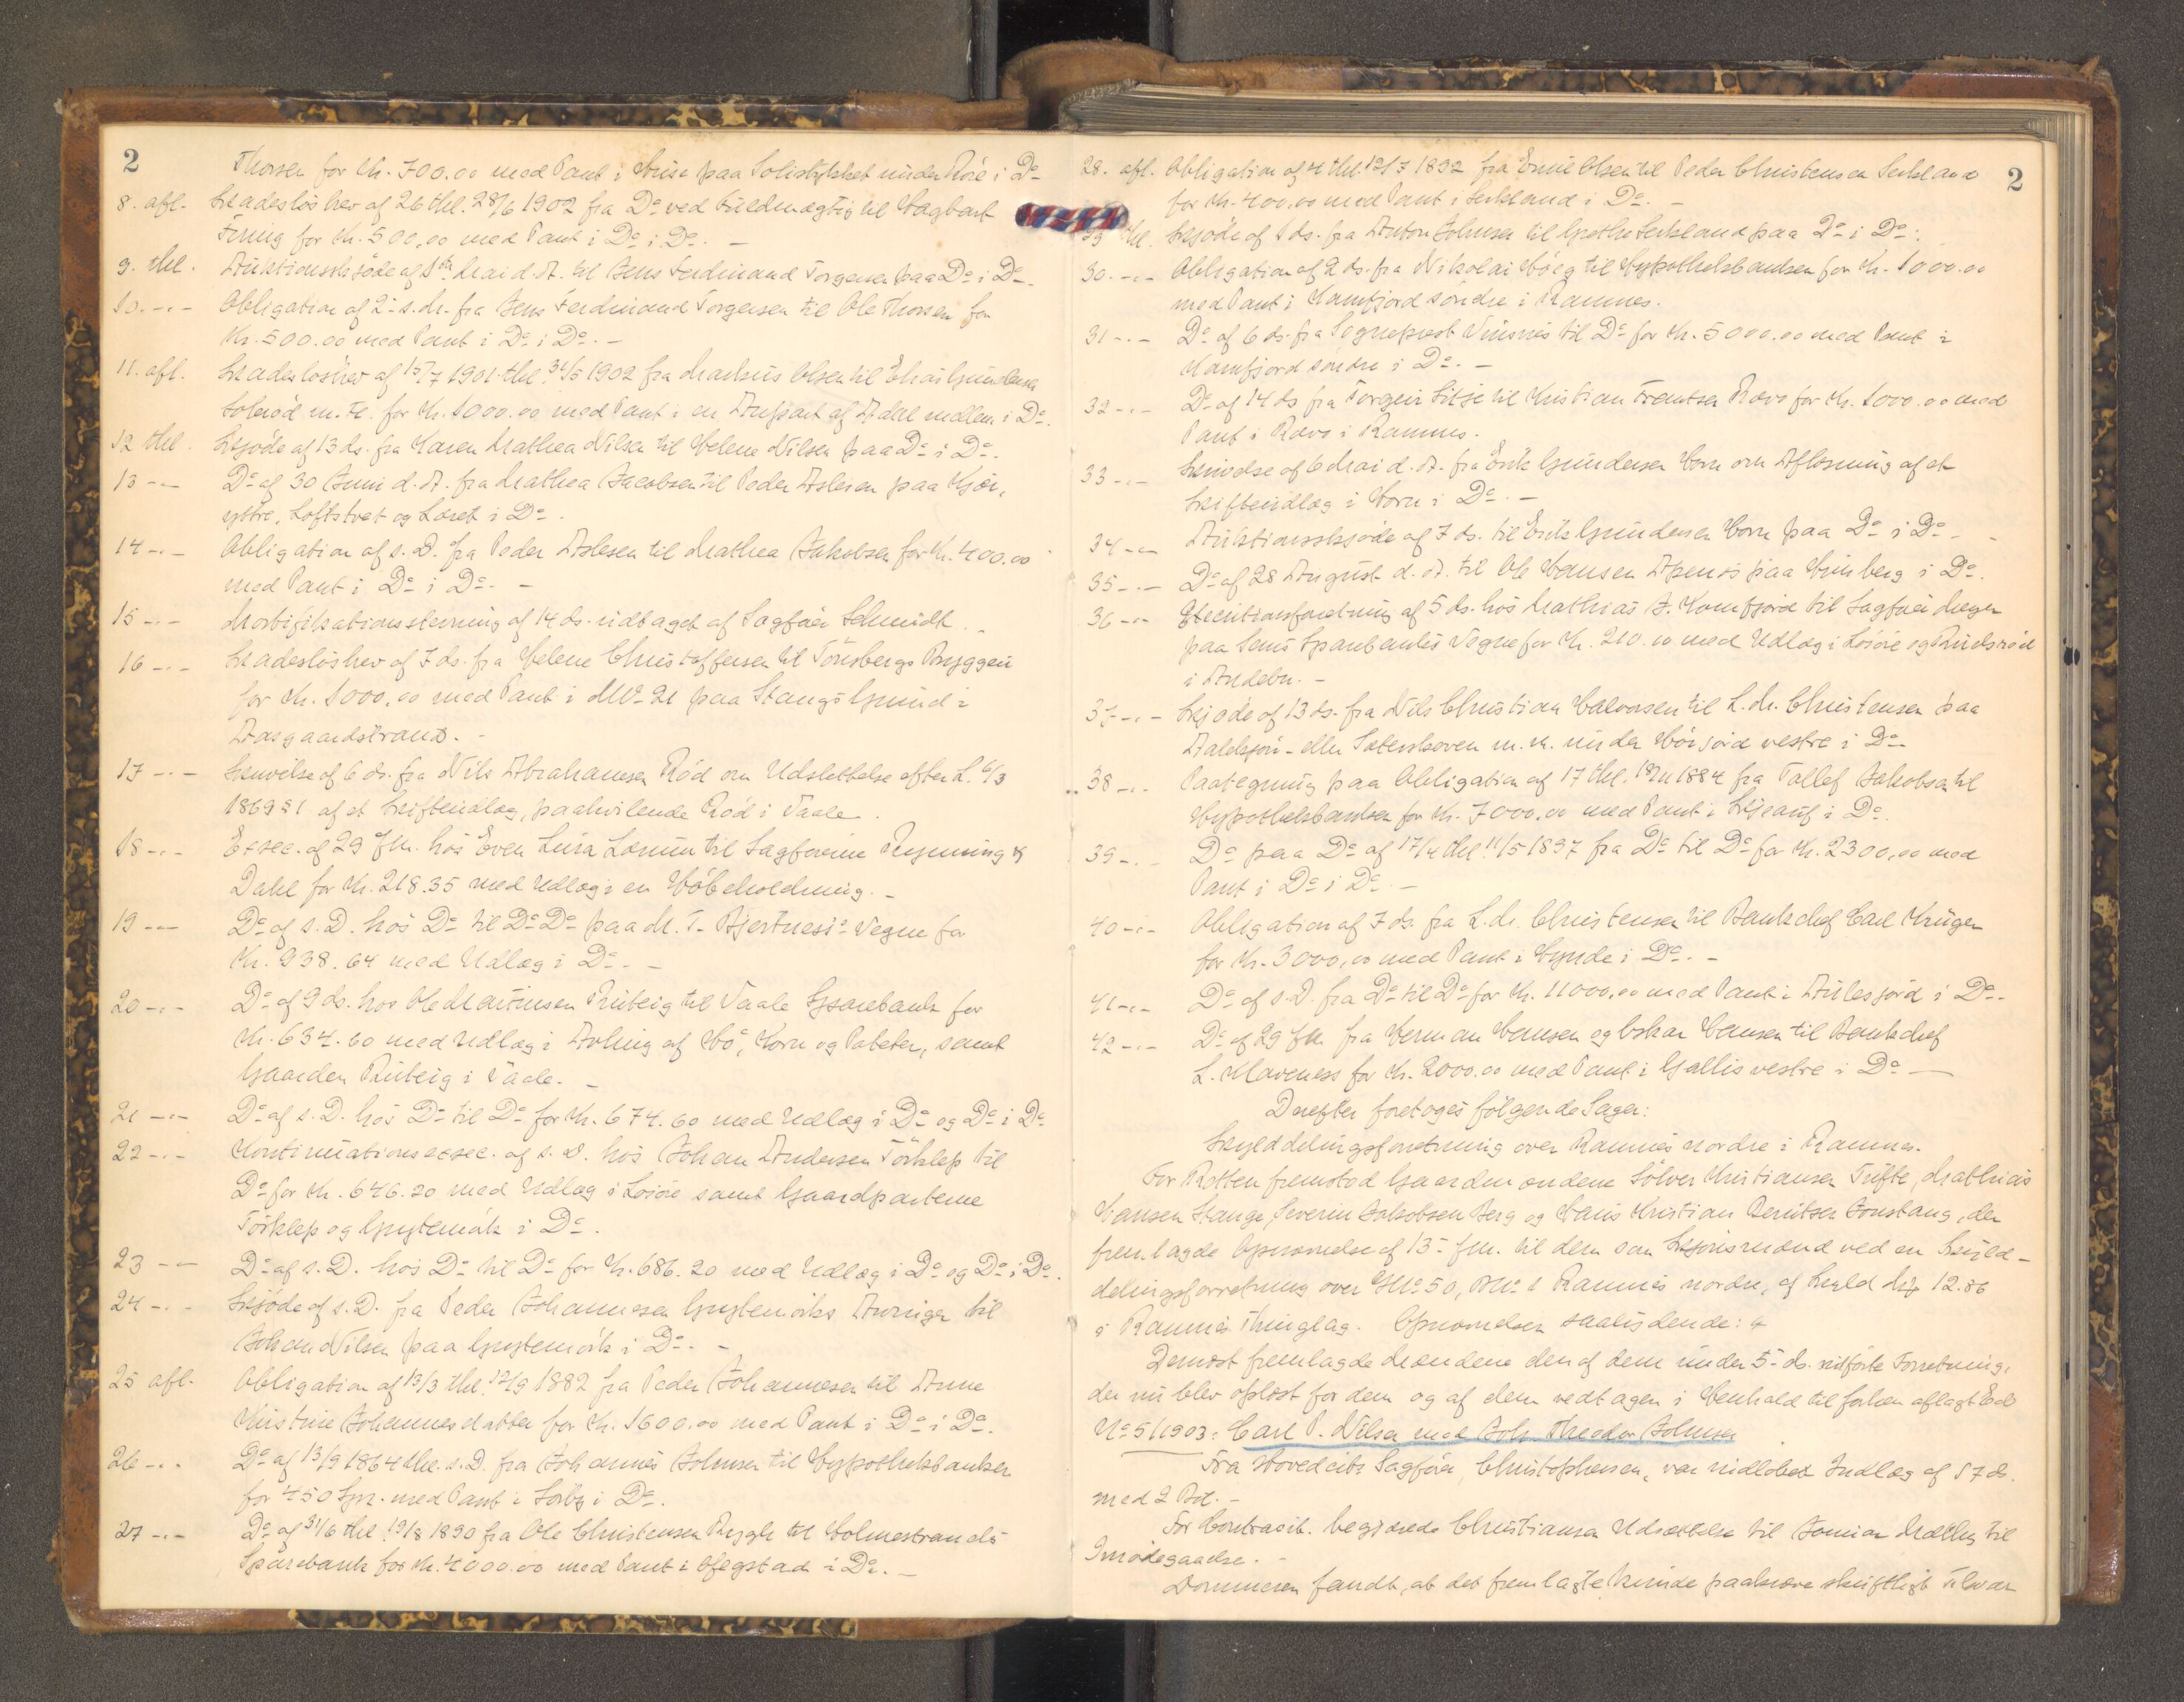 2
Thorsen for Kr. 700.00 med Pant i Huse paa Solistykket under Roré i Do
8. afl. Skadesløsbrev af 26 thl. 28/6 1902 fra Do ved Fuldmægtig til Dagbart
for Kr. 500,00 med Pant i Do i Do. –
9. thl. Auktionsskjøde af 1ste Mai d. A. til Jens Ferdinand Torgersen paa Do i Do.
10. -.- Obligation af 2 s. M. fra Jens Ferdinand Torgersen til Ole Thorsen for
Kr. 500.00 med Pant i Do i Do. –
11. afl. Skadesløsbrev af 15/7 1901 thl. 31/5 1902 fra Markus Olsen til Elias Gundersen
Solerød m. Fl. for Kr. 1000.00 med Pant i en Anpart af Adal mellem i Do.
12 thl. Skjøde af 13 ds. fra Karen Mathea Nilsen til Helene Nilsen paa Do i Do.
13 -.- Do af 30 Juni d. A. fra Mathea Jacobsen til Peder Aslesen paa Kjær,
ystre, Loftstvet og Løvet i Do.
14 -.- Obligation af s. D. fra Peder Aslesen til Mathea Jakobsen for Kr. 400.00
med Pant i Do i Do. –
15 -.- Mortifikationsstevning af 14 ds. udtaget af Sagfører Schmidt. –
16 -.- Skadesløsbrev af 7 ds. fra Helene Christoffersen til Tønsbergs Bryggeri
for Kr. 1000,00 med Pant i MNo 21 paa Stangs Grund i
Aasgaardstrand. –
17 -.- Skrivelse af 6 ds. fra Nils Abrahamsen Rød om Udslettelse efter L. 6/3
1869 § 1 af et Skifteudlæg, paahvilende Rød i Vaale.
18 -.- Exsec. af 29 f. M. hos Even Luca til Sagførerne Rynning &
Dahl for Kr. 218.35 med Udlæg i en Høbeholdning. –
19 -.- Do af s. D. hos Do til Do Do paa M. T. Bjertnæs's Vegne for
Kr. 938.64 med Udlæg i Do. –
20 -.- Do af 9 ds. hos Ole Martinsen Rubeig til Vaale Sparebank for
Kr. 634.60 med Udlæg i Avling af Hø, Korn og Poteter, samt
Gaarden Rubeig i Vaale. –
21 -.- Do af s. D. hos Do til Do for Kr. 674.60 med Udlæg i Do og Do i Do
22 -.- Kontinuationsexsec. af s. D. hos Johan Andersen Tørklep til
Do for Kr. 646.20 med Udlæg i Løsøre samt Gaardparterne
Tørklep og Grytemørk i Do.
23 -.- Do af s. D. hos Do til Do for Kr. 686.20 med Udlæg i Do og Do i Do.
24 -.- Skjøde af s. D. fra Peder Johannesen Grytemørks Arvinger til
Johan Nilsen paa Grytemørk i Do. –
25 afl. Obligation af 13/3 thl. 12/9 1882 fra Peder Johannesen til Anne
Kirstine Johannesdatter for Kr. 1600.00 med Pant i Do i Do.
26 -.- Do af 13/9 1864 thl. s. D. fra Johannes Johnsen til Hypothekbanken
for 450 Spd. med Pant i Sørby i Do.
27 -.- Do af 31/6 thl. 19/8 1890 fra Ole Christensen Rygh til Holmestrands
Sparebank for Kr. 4000.00 med Pant i Ofegstad i Do. –
2
28. afl. Obligation af 4 thl. 12/7 1892 fra Emil Olsen til Peder Christensen Serkland
for Kr. 400,00 med Pant i Serkland i Do. –
29 thl. Skjøde af 1 ds. fra Anton Johnsen til Grethe Serkland paa Do i Do.
30. -.- Obligation af 2 ds. fra Nikolai Høeg til Hypothekbanken for Kr. 1000.00
med Pant i Kamfjord søndre i Ramnes.
31 -.- Do af 6 ds. fra Sogneprest Vinsnes til Do for Kr. 5000.00 med Pant i
Kamfjord søndre i Do. –
32 -.- Do af 14 ds fra Torgeir Sitje til Kristian Frantsen Rævø for Kr. 1000.00 med
Pant i Rævø i Ramnes.
33 -.- Skrivelse af 6 Mai d. A. fra Erik Gundersen Horn om Afløsning af et
Skifteudlæg i Horn i Do. –
34 -.- Auktionsskjøde af 7 ds. til Erik Gundersen Horn paa Do i Do. –
35 -.- Do af 28 August d. A. til Ole Hansen Apenes paa Vinberg i Do.
36 -.- Executionsforretning af 5 ds. hos Mathias J. Kamfjord til Sagfører Meyer
paa Sems Sparebanks Vegne for Kr. 210.00 med Udlæg i Løsøre og Rudsrød
i Andebu. –
37 -.- Skjøde af 13 ds. fra Nils Christian Halvorsen til L. M. Christensen paa
eller Sæterskoven m. M. under Høijord vestre i Do
38 -.- Paategning paa Obligation af 17 thl. 18/11 1884 fra Tollef Jakobsen til
Hypothekbanken for Kr. 7000,00 med Pant i Skjeauf i Do.
39 -.- Do paa Do af 17/4 thl. 11/5 1897 fra Do til Do for Kr. 2300,00 med
Pant i Do i Do. –
40 -.- Obligation af 7 ds. fra L. M. Christensen til Bankchef Carl Krüger
for Kr. 3000,00 med Pant i Hynde i Do. –
41 -.- Do af s. D. fra Do til Do for Kr. 11000,00 med Pant i Aulesjord i Do.
42 -.- Do af 29 f. M. fra Herman Hansen og Oskar Hansen til Bankchef
L. Klaveness for Kr. 2000.00 med Pant i Gallis vestre i Do –
Derefter foretoges følgende Sager:
Skylddelingsforretning over Ramnes nordre i Ramnes.
For Retten fremstod Gaardmændene Sølver Kristiansen Tufte, Mathias
Hansen Stange, Severin Jakobsen Berg og Hans Kristian Berntsen Jonstang, der
fremlagde Opnævnelse af 13 f. M. til dem som Skjønsmænd ved en Skyld-
delingsforretning over GNo 50, BNo 1 Ramnes nordre, af Skyld Mk 12.86
i Ramnes Thinglag. Opnævnelsen saalydende: 4
Dernæst fremlagde Mændene den af dem under 5 ds. udførte Forretning,
der nu blev oplæst for dem og af dem vedtagen i Henhold til forhen aflagt Ed
No 5/1903: Carl P. Nilsen mod Joh. Theodor Johnsen
Fra Hovedcit. Sagfører, Christophersen, var indløbet Indlæg af 17 ds.
med 2 Bil. –
For Contracit. begjærede Christiansen Udsættelse til Januar Mdthg til
Imødegaaelse. –
Dommeren fandt, at det fremlagte kunde paakræve skriftligt Tilsvar